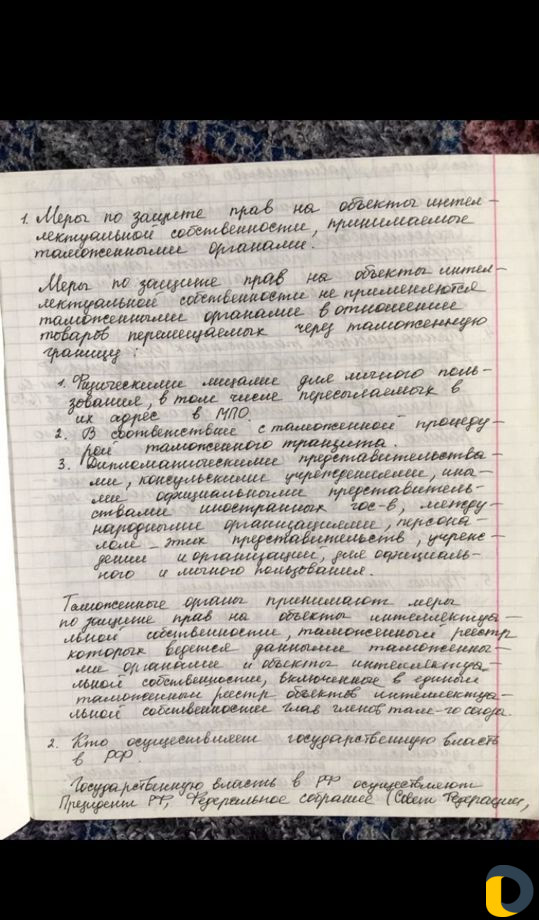 1. Меры по защите прав на объекты интел-
лектуальной собственности, принимаемые
таможенными органами.
Меры по защите прав на объекты интел-
лектуальной собственности не применяются
таможенными органами в отношении
товаров перемещаемых через таможенную
границу:
1. Физическими лицами для личного поль-
зования, в том числе пересылаемых в
их адрес в МПО.
2. В соответствие с таможенной процеду-
рой таможенного транзита.
3. Дипломатическими представительства-
ми, консульскими учреждениями, ины-
ми официальными представитель-
ствами иностранных гос-в, между-
народными организациями, персона-
лом этих представительств, учреж-
дений и организаций, для официаль-
ного и личного пользования.
Таможенные органы принимают меры
по защите прав на объекты интеллектуа-
льной собственности, таможенный реестр
которых ведется данными таможенны-
ми органами и объекты интеллектуа-
льной собственности, включенные в единый
таможенный реестр объектов интеллектуа-
льной собственности глав членов там-го союза.
2. Кто осуществляет государственную власть
в РФ
Государственную власть в РФ осуществляют
Президент РФ, Федеральное собрание (Совет Федерации,